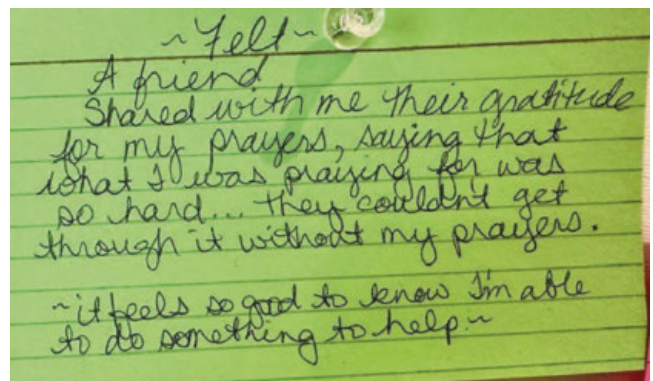 ~Felt~
A friend
Shared with me their gratitude
for my prayers, saying that
what I was praying for was
so hard... they couldn't get
through it without my prayers.
~it feels so good to know I'm able
to do something to help~